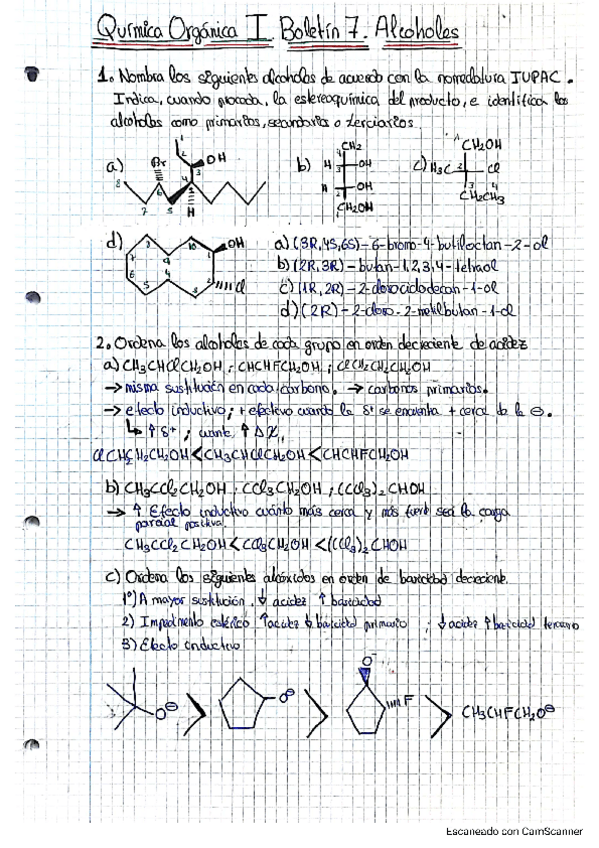 Química Orgánica I. Boletín 7. Alcoholes
1. Nombra los siguientes alcoholes de acuerdo con la nomenclatura IUPAC.
Indica, cuando proceda, la estereoquímica del producto, e identifica los
alcoholes como primarios, secundarios o terciarios.
a) Br OH H
1 2 3 4 5 6 7 8
b) CH2
H 3 OH
H 2 OH
CH2OH
c) CH2OH
H3C 2 Cl
3 4
CH2CH3
d) OH Cl
10 1 2 4 5 6 7 9
a) (3R,4S,6S)-6-bromo-4-butiloctan-2-ol
b) (2R,3R)-butan-1,2,3,4-tetraol
c) (1R,2R)-2-clorociclodecan-1-ol
d) (2R)-2-cloro-2-metilbutan-1-ol
2. Ordena los alcoholes de cada grupo en orden decreciente de acidez
a) CH3CHClCH2OH ; CHCHFCH2OH ; ClCH2CH2CH2OH
→ misma sustitución en cada carbono. → carbonos primarios.
→ efecto inductivo; + efectivo cuando la δ+ se encuentra + cerca de la ⊖.
↳ ↑ δ+ ; ↑ ΔX,
ClCH2CH2CH2OH < CH3CHClCH2OH < CHCHFCH2OH
b) CH3CCl2CH2OH ; CCl3CH2OH ; (CCl3)2CHOH
→ ↑ Efecto inductivo cuánto más cerca y más fuerte sea la carga
parcial positiva.
CH3CCl2CH2OH < CCl3CH2OH < (CCl3)2CHOH
c) Ordena los siguientes alcóxidos en orden de basicidad decreciente.
1º) A mayor sustitución, ↓ acidez ↑ basicidad
2) Impedimento estérico ↑acidez ↓ basicidad primario ; ↓acidez ↑basicidad terciario
3) Efecto inductivo
O⊖ > O⊖ > O⁻ F > CH3CHFCH2O⊖
Escaneado con CamScanner